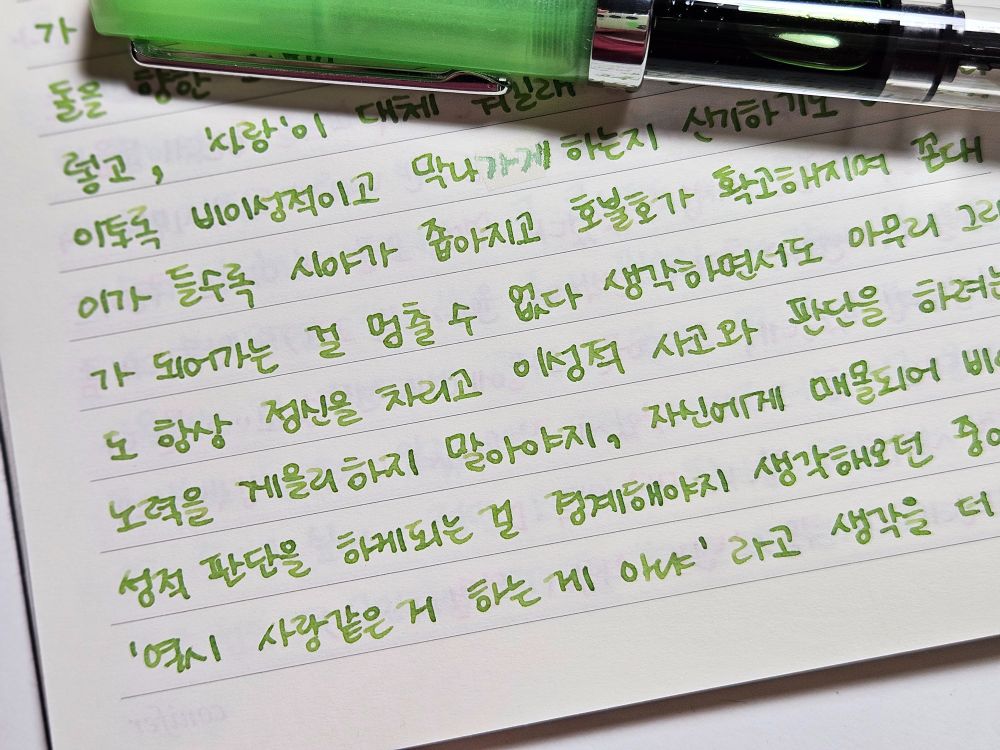 가
둘을 향한
렇고, '사랑'이 대체 뭐길래
이토록 비이성적이고 막나가게 하는지 신기하기도
이가 들수록 시야가 좁아지고 호불호가 확고해지며 꼰대
가 되어가는 걸 멈출 수 없다 생각하면서도 아무리 그러
도 항상 정신을 차리고 이성적 사고와 판단을 하려는
노력을 게을리하지 말아야지, 자신에게 매몰되어 비이
성적 판단을 하게되는 걸 경계해야지 생각해오던 중이
'역시 사랑같은 거 하는 게 아냐' 라고 생각을 더
conifer